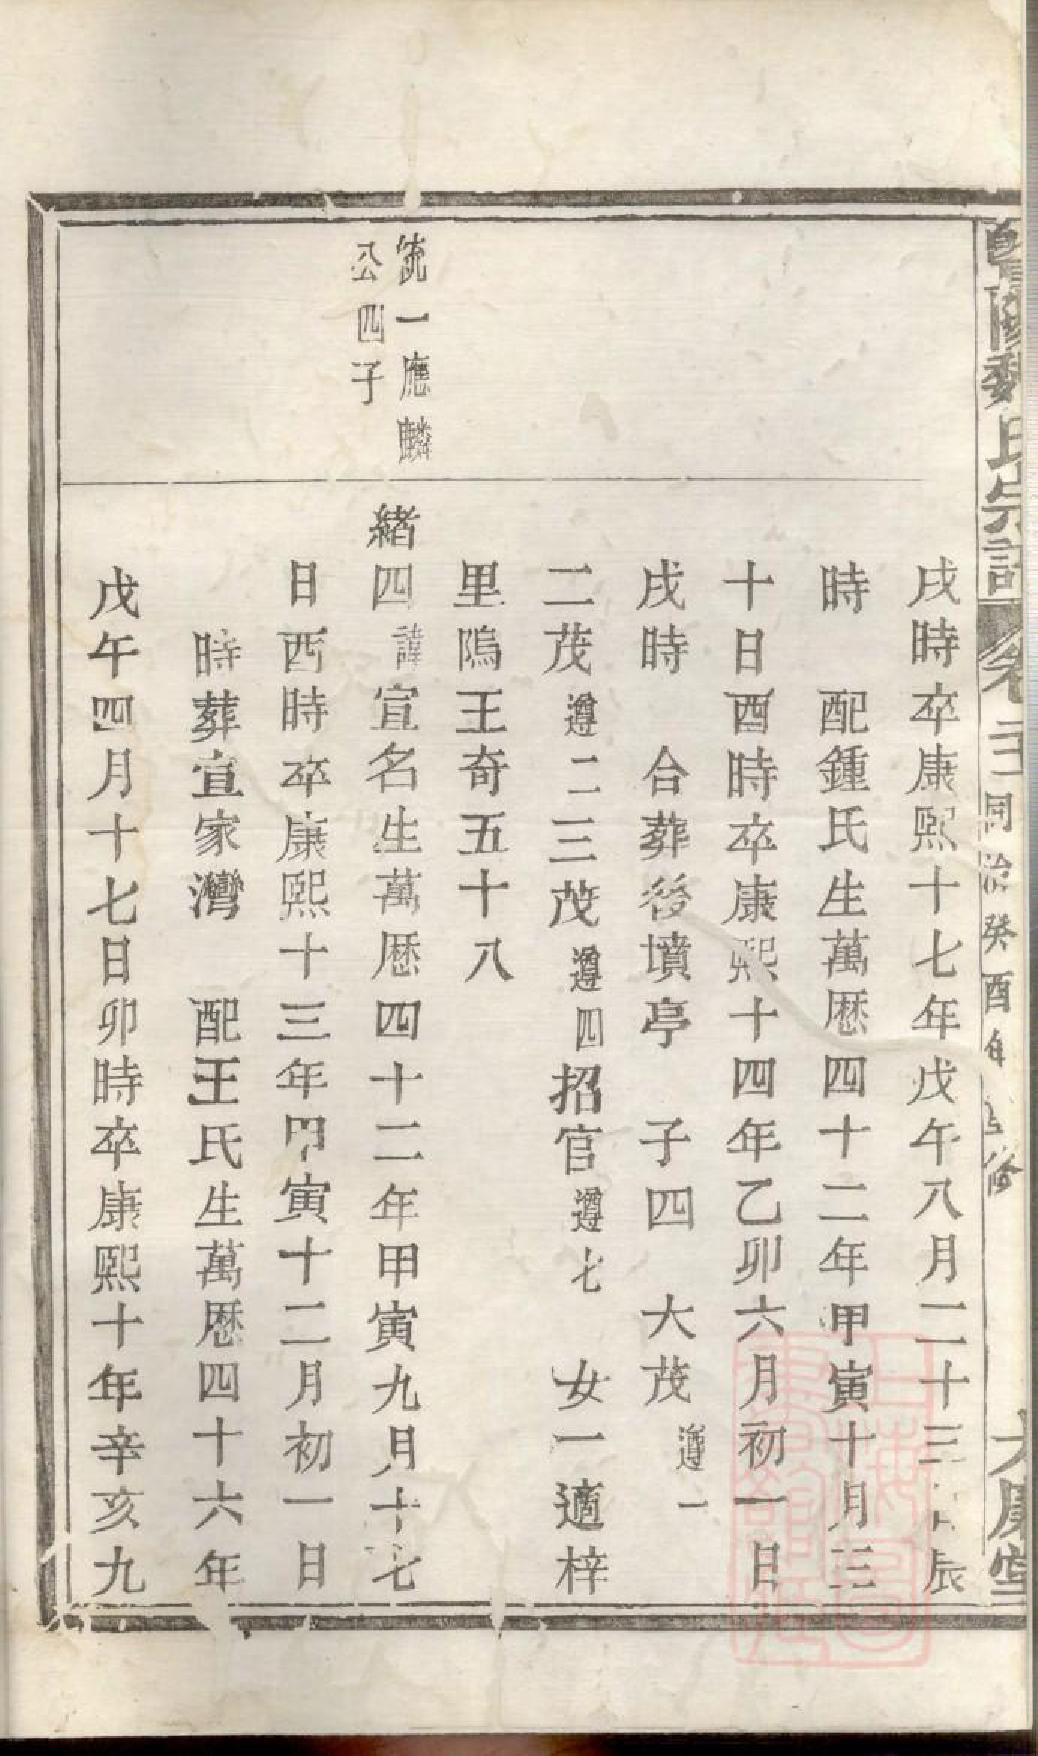 暨陽魏氏宗譜 卷 同治癸酉年 修 大 堂
戌時卒康熙十七年戊午八月二十三日辰
時 配鍾氏生萬厯四十二年甲寅十月三
十日酉時卒康熙十四年乙卯六月初一日
戌時 合葬後墳亭 子四 大茂遵一
二茂遵二三茂遵四招官遵七 女一適梓
里鳴王奇五十八
統一應麟
公四子
緒四諱宣名生萬厯四十二年甲寅九月十七
日酉時卒康熙十三年甲寅十二月初一日
時葬宣家灣 配王氏生萬厯四十六年
戊午四月十七日卯時卒康熙十年辛亥九